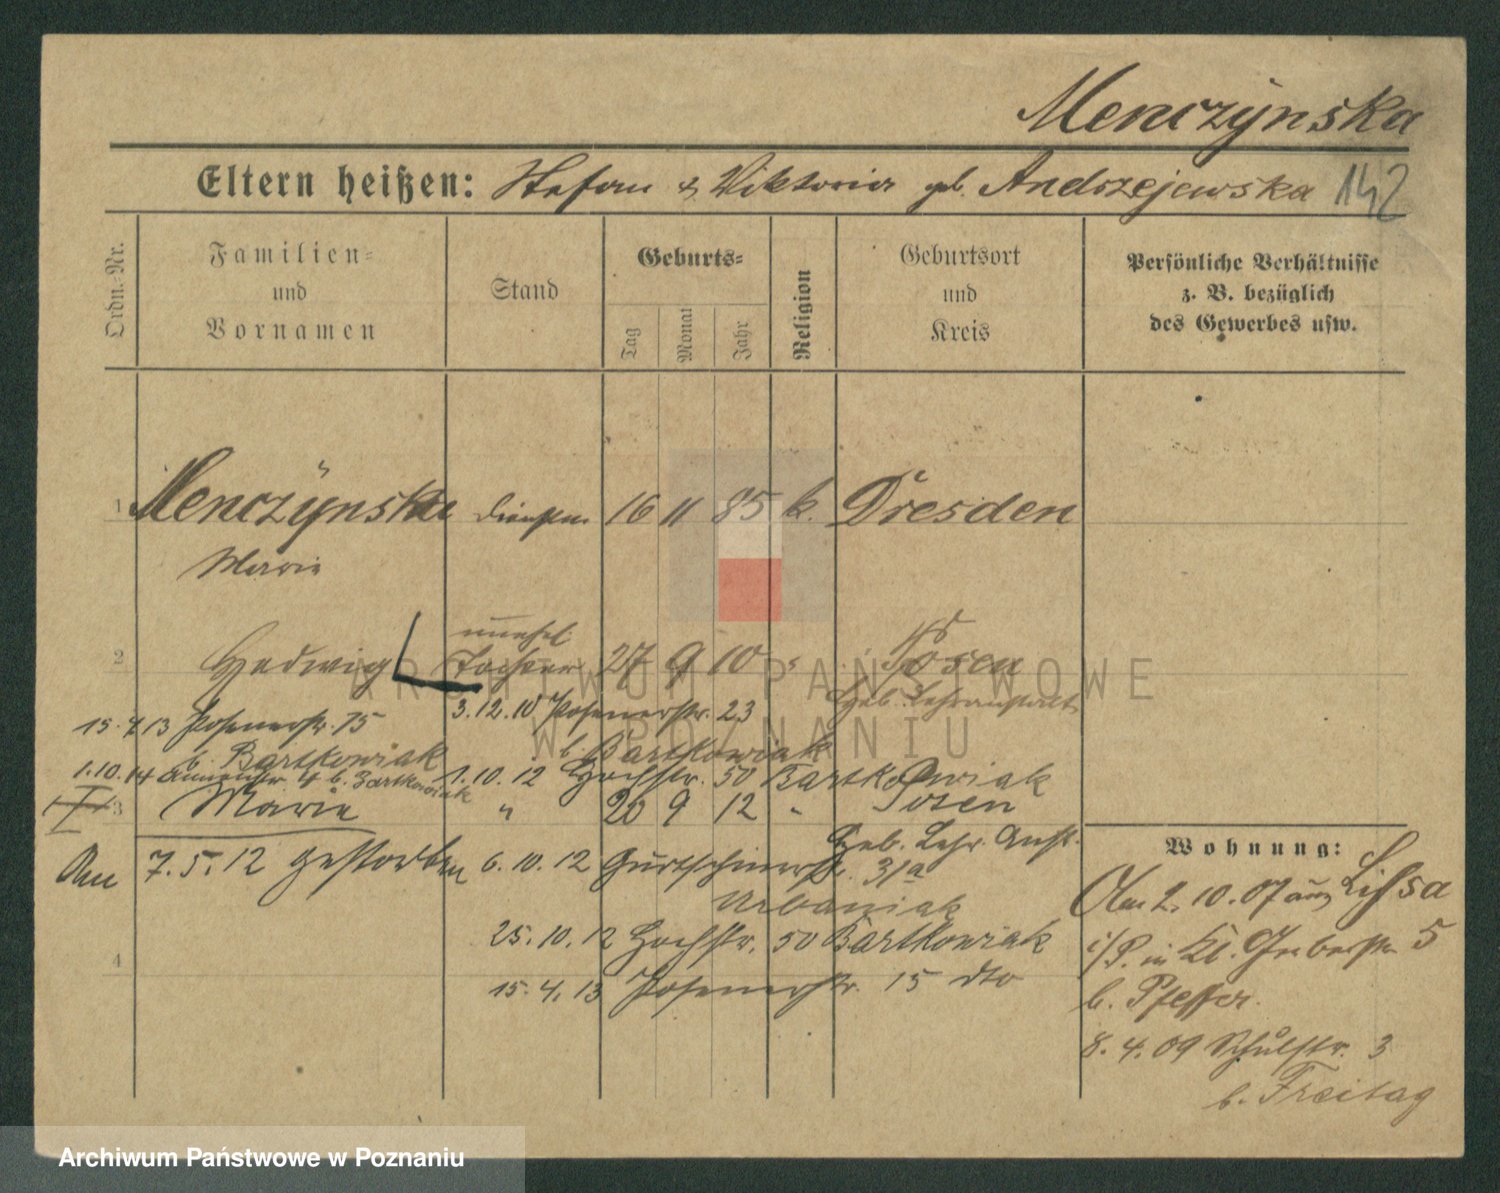 Menczynska
Eltern heißen: Stefan & Viktoria geb. Andrzejewska 142
Ordn.-Nr.
Familien-
und
Vornamen
Stand
Geburts-
Tag
Monat
Jahr
Religion
Geburtsort
und
Kreis
Persönliche Verhältnisse
z. B. bezüglich
des Gewerbes usw.
1 Menczynska 16 11 85 k. Dresden
Marie
unehel.
2 Hedwig Tochter 27 9 10 " Posen
Heb. Lehranstalt
3.12.10 Posenerstr. 23
b. Bartkowiak
15.4.13 Posenerstr. 15
b. Bartkowiak
1.10.14 4 b. Bartkowiak
1.10.12 Hochstr. 50 Bartkowiak
3 Marie " 20 9 12 " Posen
Heb. Lehr. Anst.
7.5.12 gestorben
6.10.12 31a
Urbaniak
25.10.12 Hochstr. 50 Bartkowiak
4
15.4.13 Posenerstr. 15 dto
Wohnung:
Am 2.10.07 aus Lissa
i/P. in Kl. Gerberstr. 5
b. Pfeffer
8.4.09 Schulstr. 3
b. Freitag
ARCHIWUM PAŃSTWOWE
W POZNANIU
Archiwum Państwowe w Poznaniu